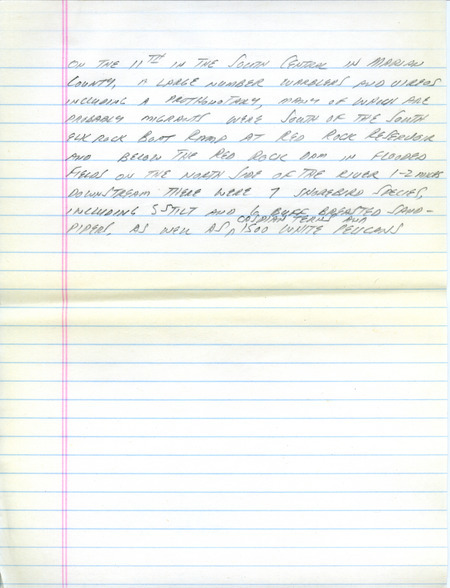 ON THE 11TH IN THE SOUTH CENTRAL IN MARION
COUNTY, A LARGE NUMBER WARBLERS AND VIREOS
INCLUDING A PROTHONOTARY, MANY OF WHICH ARE
PROBABLY MIGRANTS WERE SOUTH OF THE SOUTH
ELK ROCK BOAT RAMP AT RED ROCK RESERVOIR
AND BELOW THE RED ROCK DAM IN FLOODED
FIELDS ON THE NORTH SIDE OF THE RIVER 1-2 MILES
DOWNSTREAM THERE WERE 7 SHOREBIRD SPECIES,
INCLUDING STILT AND 6 BUFF BREASTED SAND-
CASPIAN TERNS AND
PIPERS, AS WELL AS 1500 WHITE PELICANS